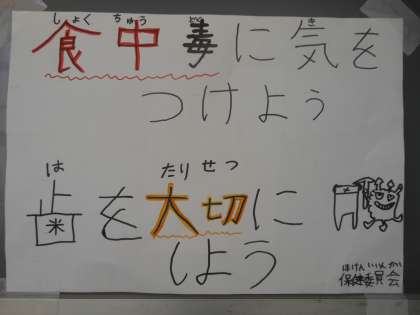 しょく ちゅう どく き
食中毒に気を
つけよう
は たり せつ
歯を大切に
しよう
ほけん いいん かい
保健委員会